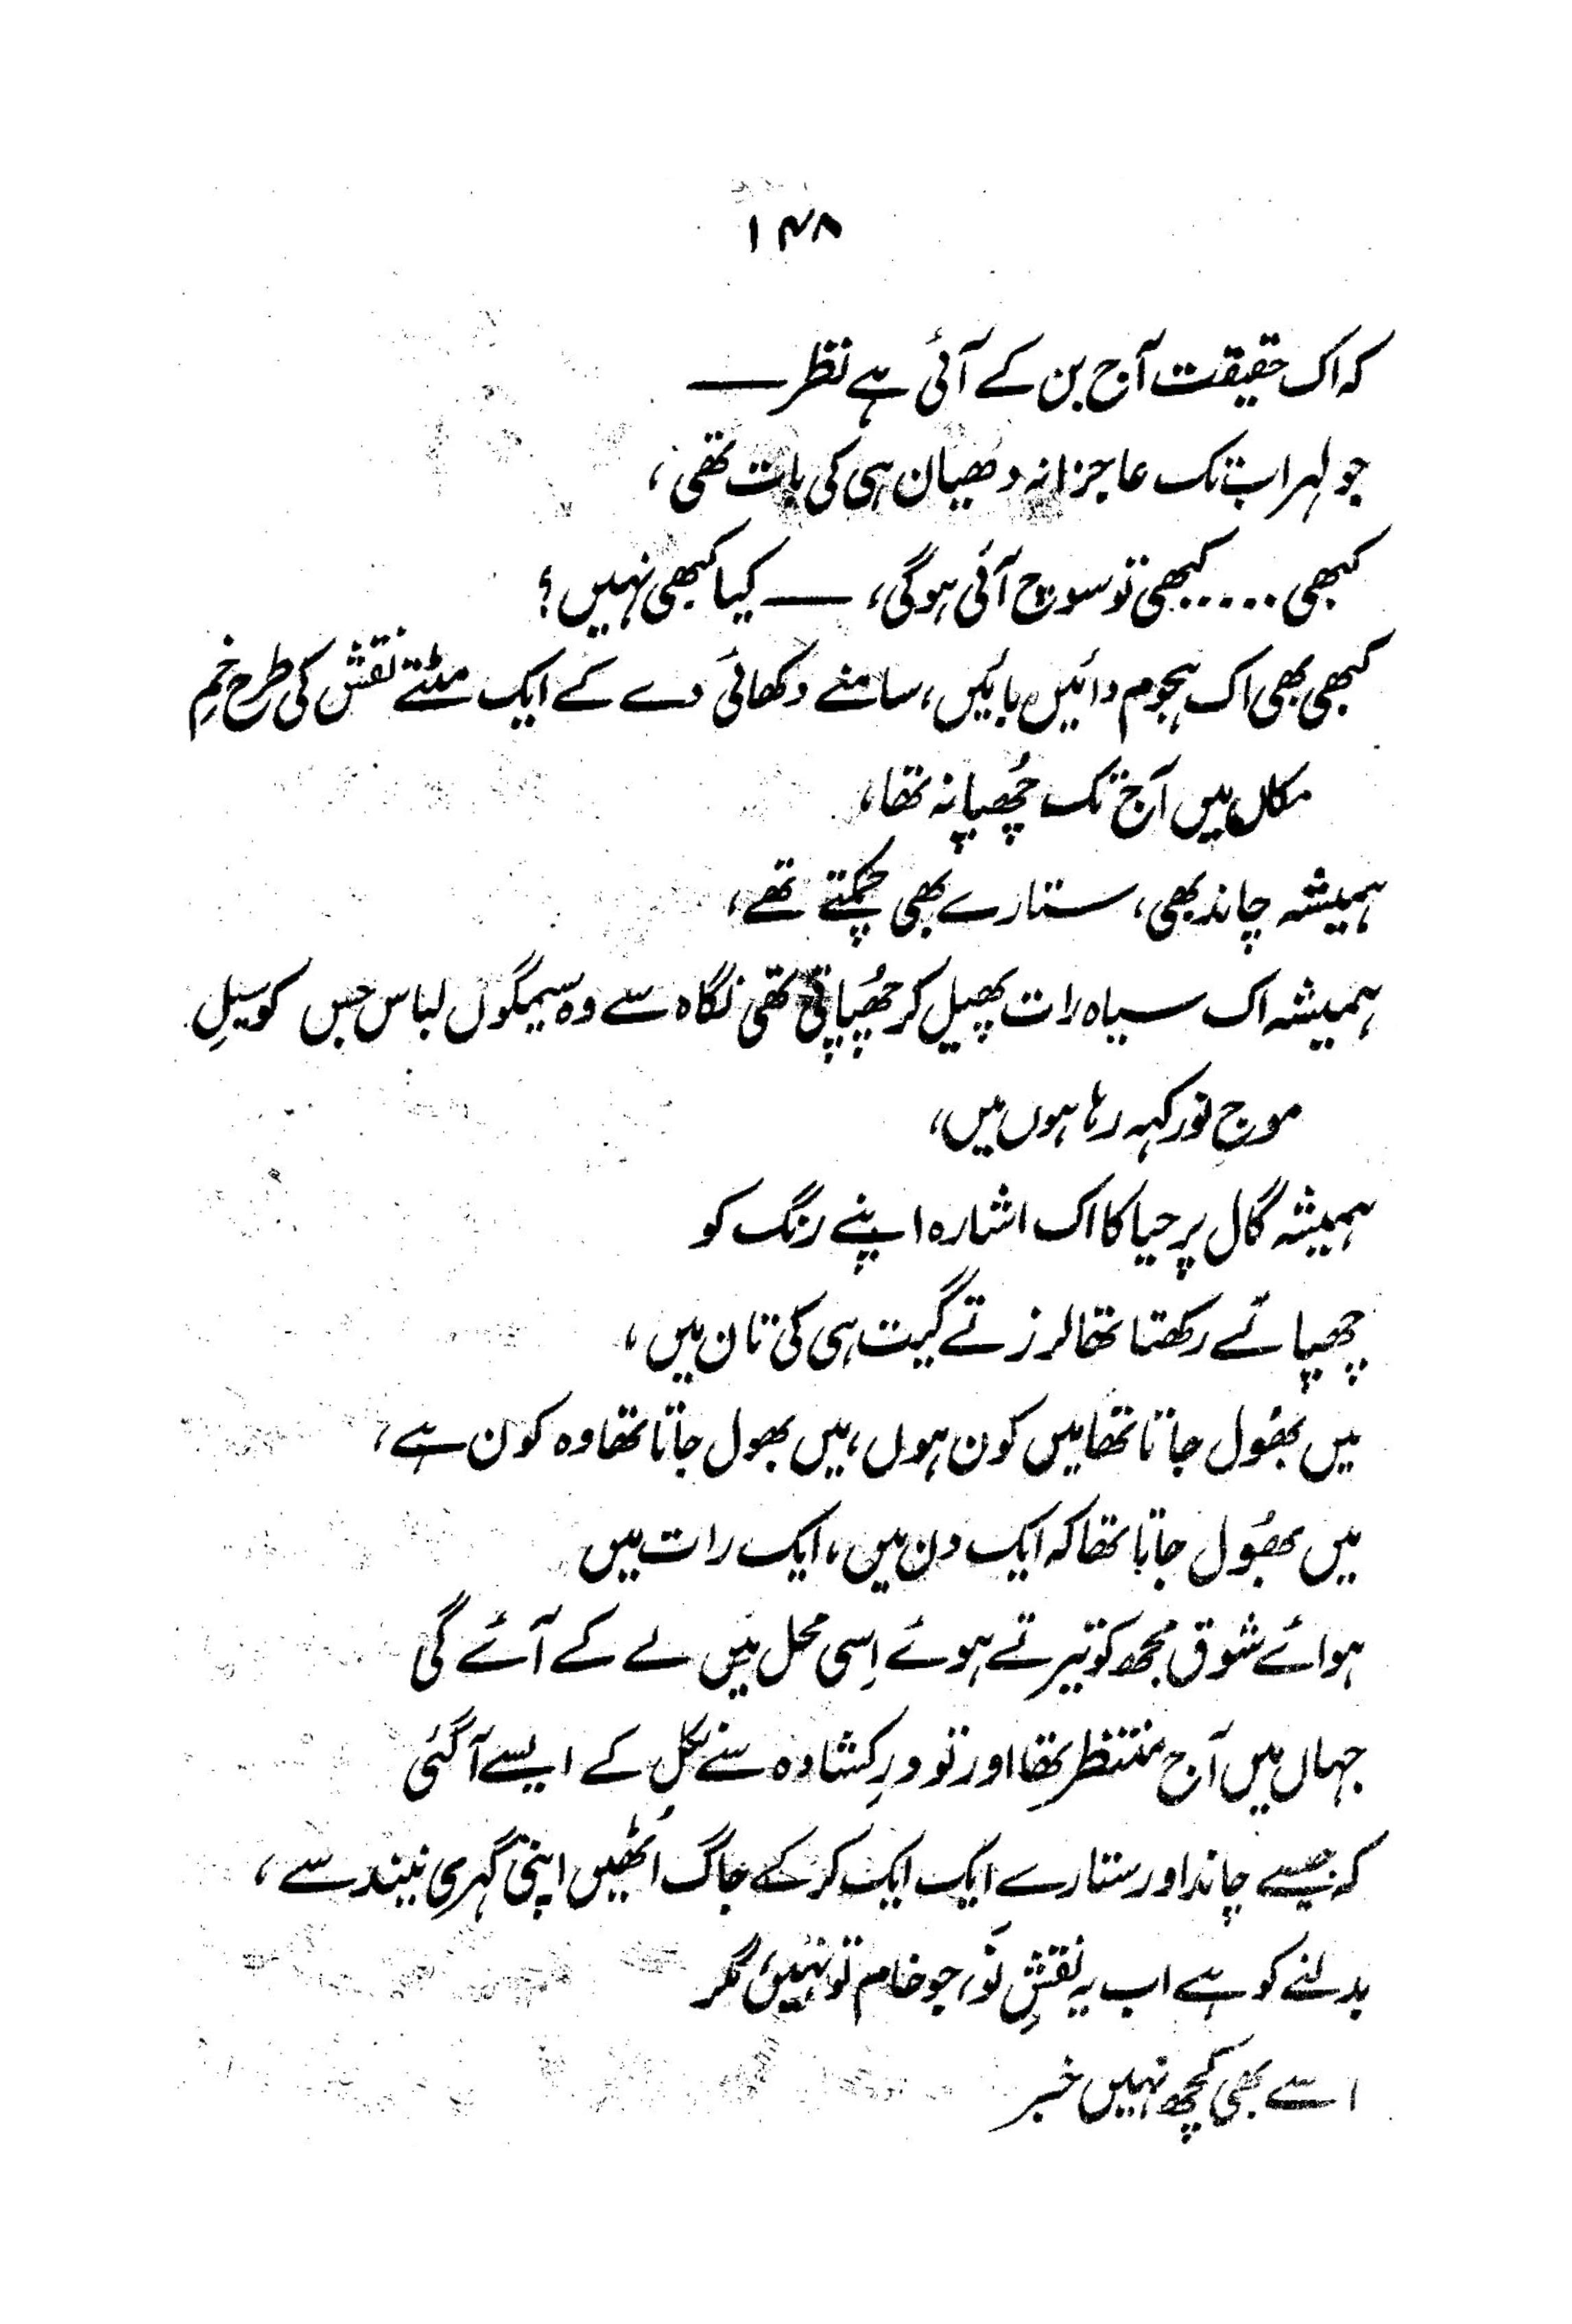 ۱۴۸
کہ اک حقیقت آج بن کے آئی ہے نظر ——
جو لہر اب تک عاجزانہ دھیان ہی کی بات تھی،
کبھی ..... کبھی تو سوچ آئی ہوگی، —— کیا کبھی نہیں؟
کبھی بھی اک ہجوم دائیں بائیں، سامنے دکھائی دے کے ایک مٹتے نقش کی طرح خمِ
مکاں میں آج تک چُھپا نہ تھا،
ہمیشہ چاند بھی، ستارے بھی چمکتے تھے،
ہمیشہ اک سیاہ رات پھیل کر چُھپاتی تھی نگاہ سے وہ سیمگوں لباس جس کو سیلِ
موجِ نور کہہ رہا ہوں میں،
ہمیشہ گال پر حیا کا اک اشارہ اپنے رنگ کو
چھپائے رکھتا تھا لرزتے گیت ہی کی تان میں،
میں بھُول جاتا تھا میں کون ہوں، میں بھول جاتا تھا وہ کون ہے،
میں بھُول جاتا تھا کہ ایک دن میں، ایک رات میں
ہوائے شوق مجھ کو تیرتے ہوئے اِسی محل میں لے کے آئے گی
جہاں میں آج منتظر تھا اور تو درِ کشادہ سے نکل کے ایسے آگئی
کہ جیسے چاند اور ستارے ایک ایک کر کے جاگ اُٹھیں اپنی گہری نیند سے،
بدلنے کو ہے اب یہ نقشِ نَو، جو خام تو نہیں، مگر
اسے بھی کچھ نہیں خبر